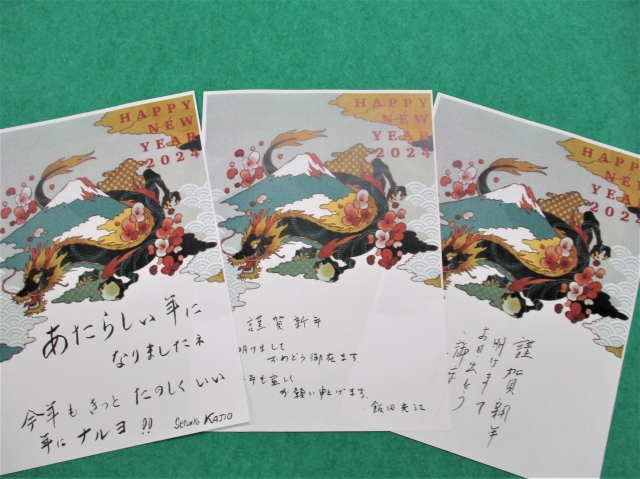 HAPPY
NEW
YEAR
2024
あたらしい年に
なりましたネ
今年もきっと たのしく いい
年に ナルヨ !! Setsuko KAJIO
HAPPY
NEW
YEAR
2024
謹賀新年
明けまして
おめどう御在ます
年も宜しく
お願い申上げます
飯田光江
HAPPY
NEW
YEAR
2024
謹賀新年
明けまして
お目出とう